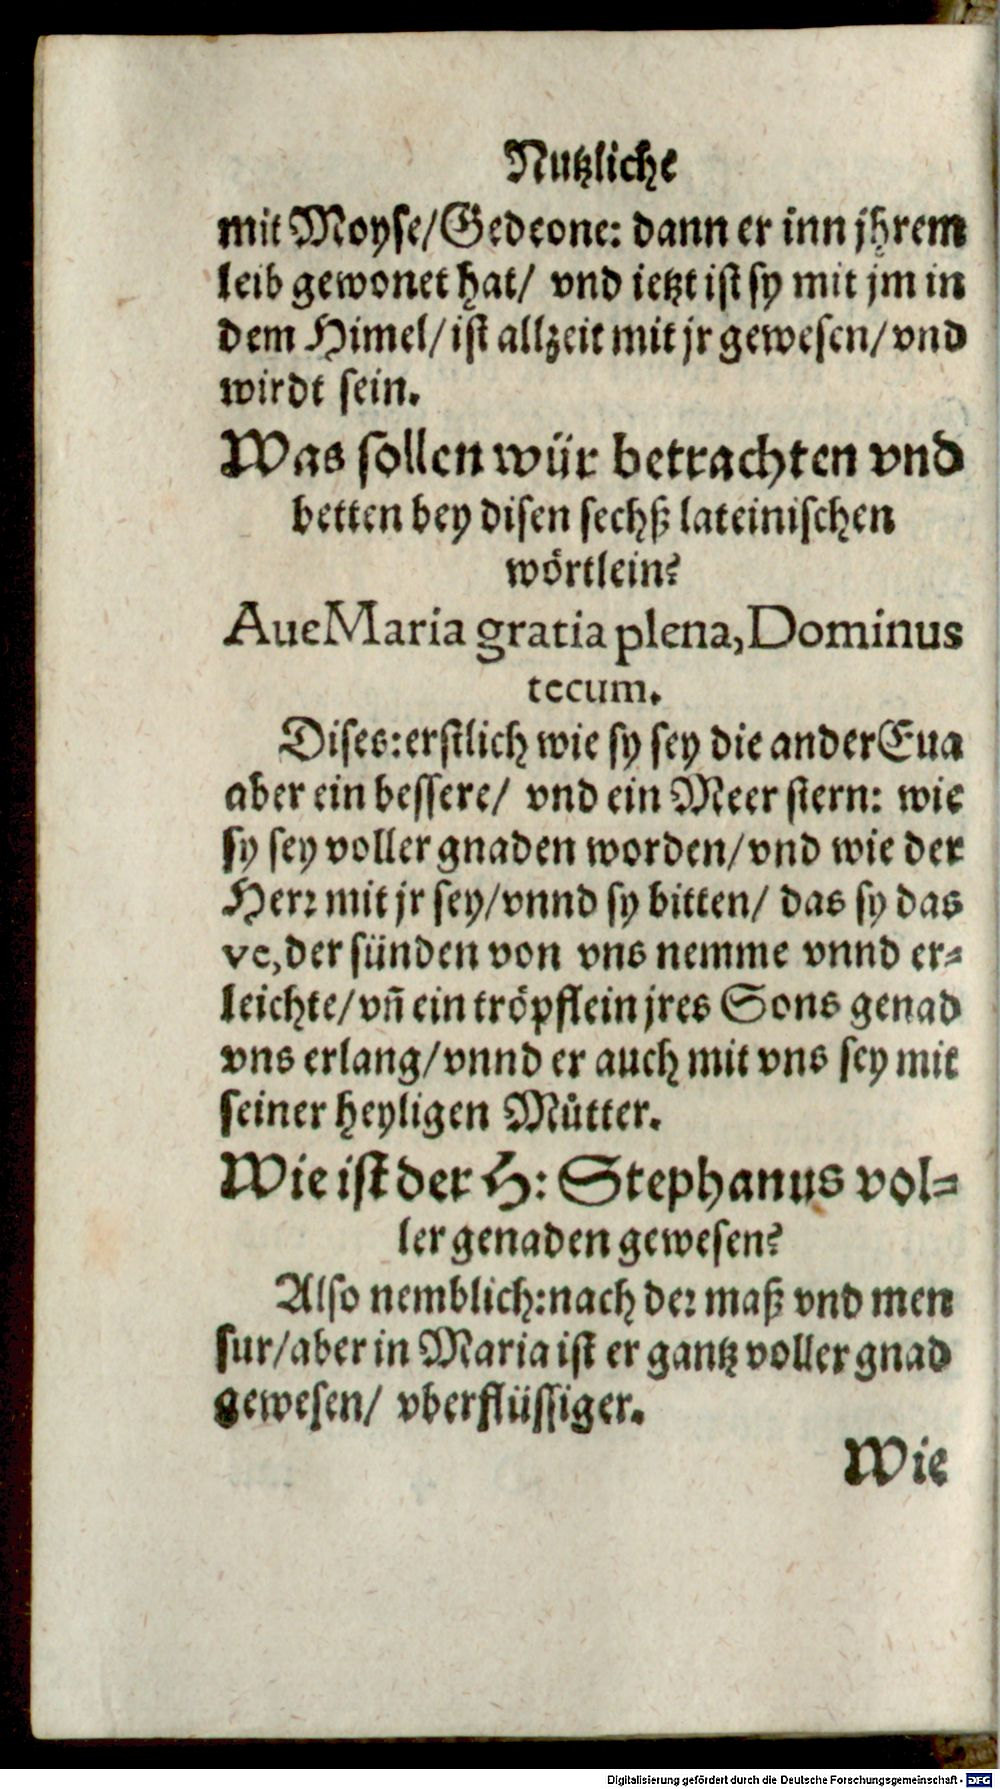 Nutzliche
mit Moyse/Gedeone: dann er inn jhrem
leib gewonet hat/ vnd ietzt ist sy mit jm in
dem Himel/ist allzeit mit jr gewesen/vnd
wirdt sein.
Was sollen wür betrachten vnd
betten bey disen sechß lateinischen
wörtlein?
Aue Maria gratia plena, Dominus
tecum.
Dises: erstlich wie sy sey die ander Eua
aber ein bessere/ vnd ein Meer stern: wie
sy sey voller gnaden worden/vnd wie der
Herr mit jr sey/vnnd sy bitten/ das sy das
ve, der sünden von vns nemme vnnd er-
leichte/vñ ein tröpflein jres Sons genad
vns erlang/vnnd er auch mit vns sey mit
seiner heyligen Můtter.
Wie ist der H: Stephanus vol-
ler genaden gewesen?
Also nemblich: nach der maß vnd men
sur/aber in Maria ist er gantz voller gnad
gewesen/ vberflüssiger.
Wie
Digitalisierung gefördert durch die Deutsche Forschungsgemeinschaft - DFG